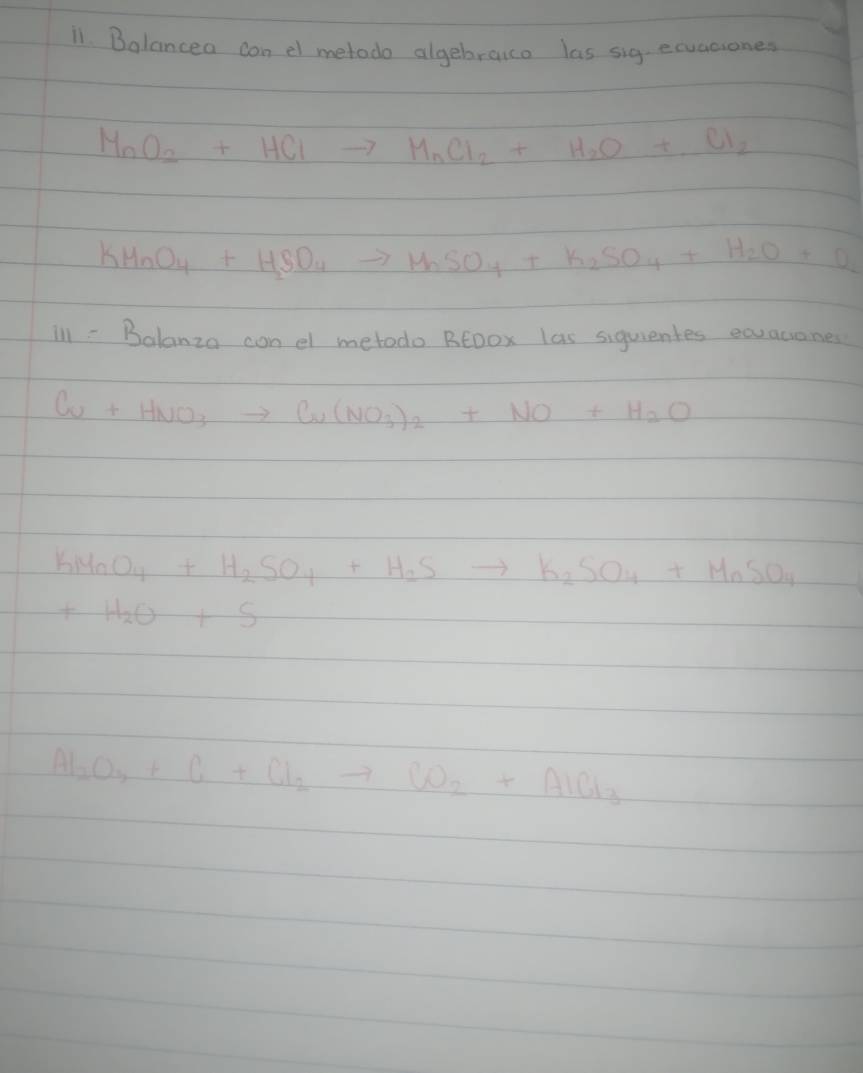 II. Balancea con el metodo algebraico las sig. ecuaciones
MnO₂ + HCl → MnCl₂ + H₂O + Cl₂
KMnO₄ + H₂SO₄ → MnSO₄ + K₂SO₄ + H₂O + O
III - Balanza con el metodo REDOX las siguientes ecuaciones
Cu + HNO₃ → Cu(NO₃)₂ + NO + H₂O
KMnO₄ + H₂SO₄ + H₂S → K₂SO₄ + MnSO₄
+ H₂O + S
Al₂O₃ + C + Cl₂ → CO₂ + AlCl₃